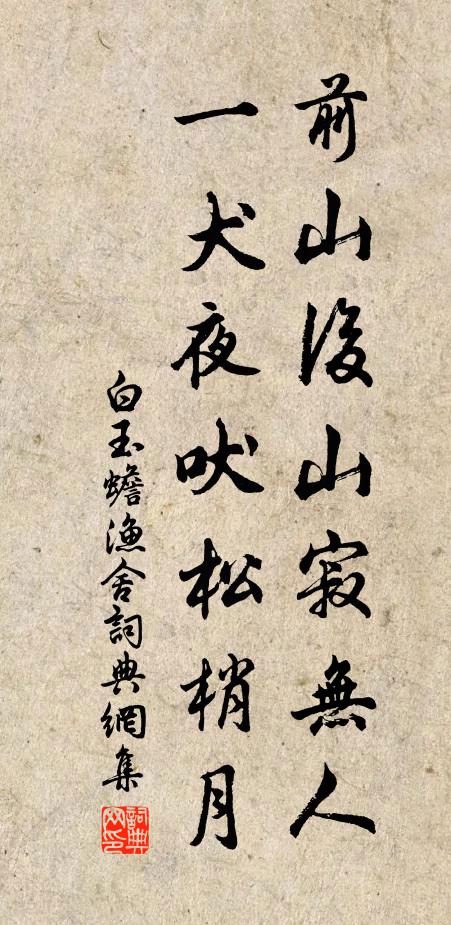 前山後山寂無人
一犬夜吠松梢月
白玉蟾漁舍詞典網集
詞典網印